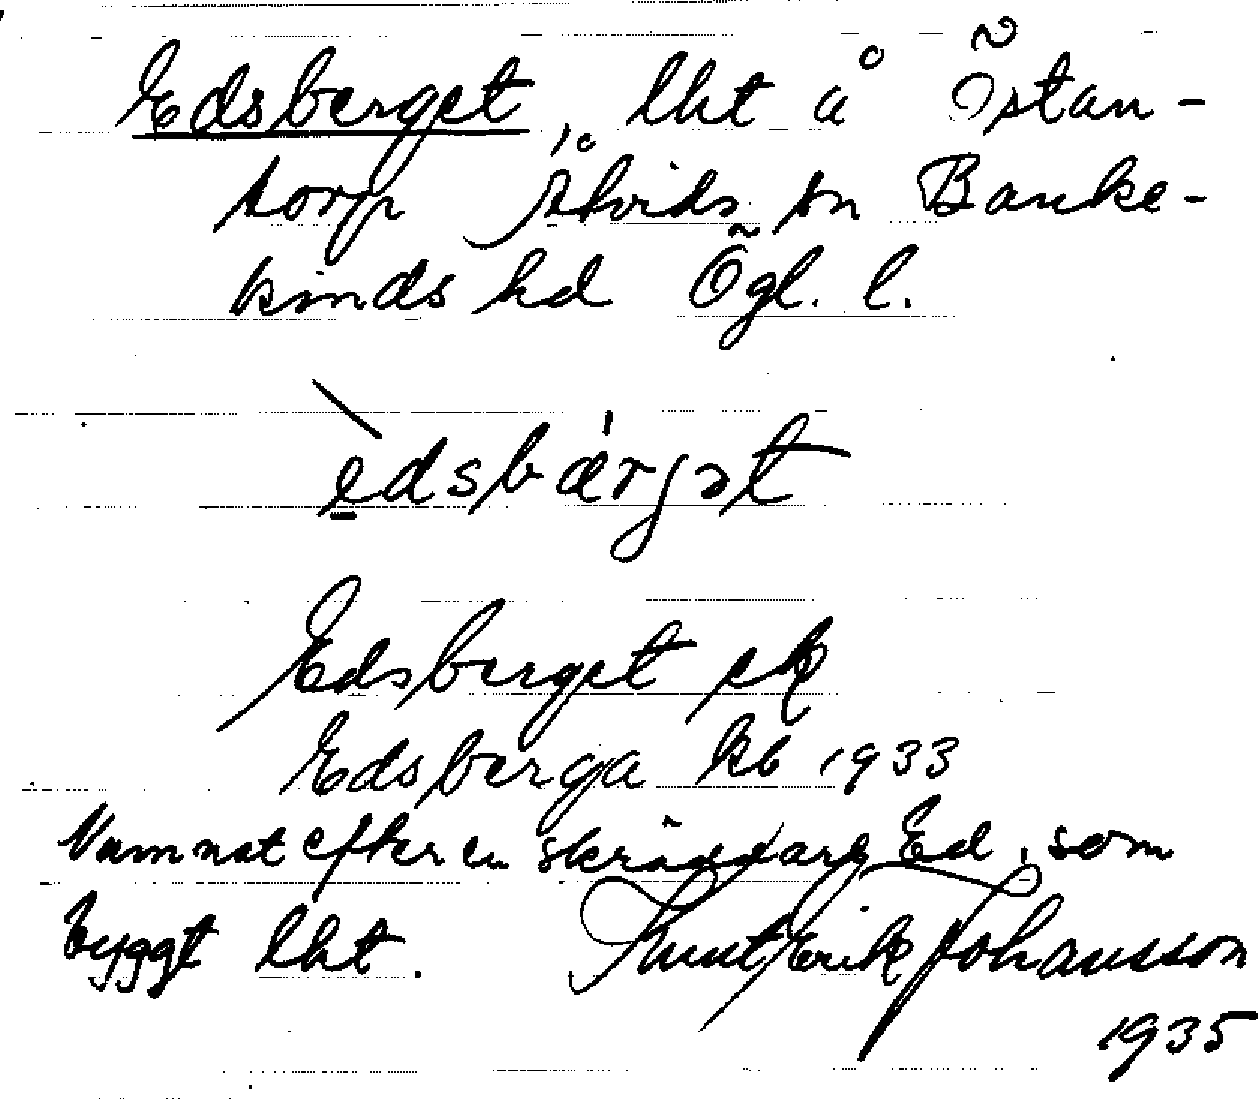 Edsberget, lht å Östan-
torp Åtvids sn Banke-
kinds hd Ögl. l.
èdsbärjət
Edsberget ek
Edsberga kb 1933
Namnat efter en skräddare Ed, som
byggt lht.
Knut Erik Johansson
1935